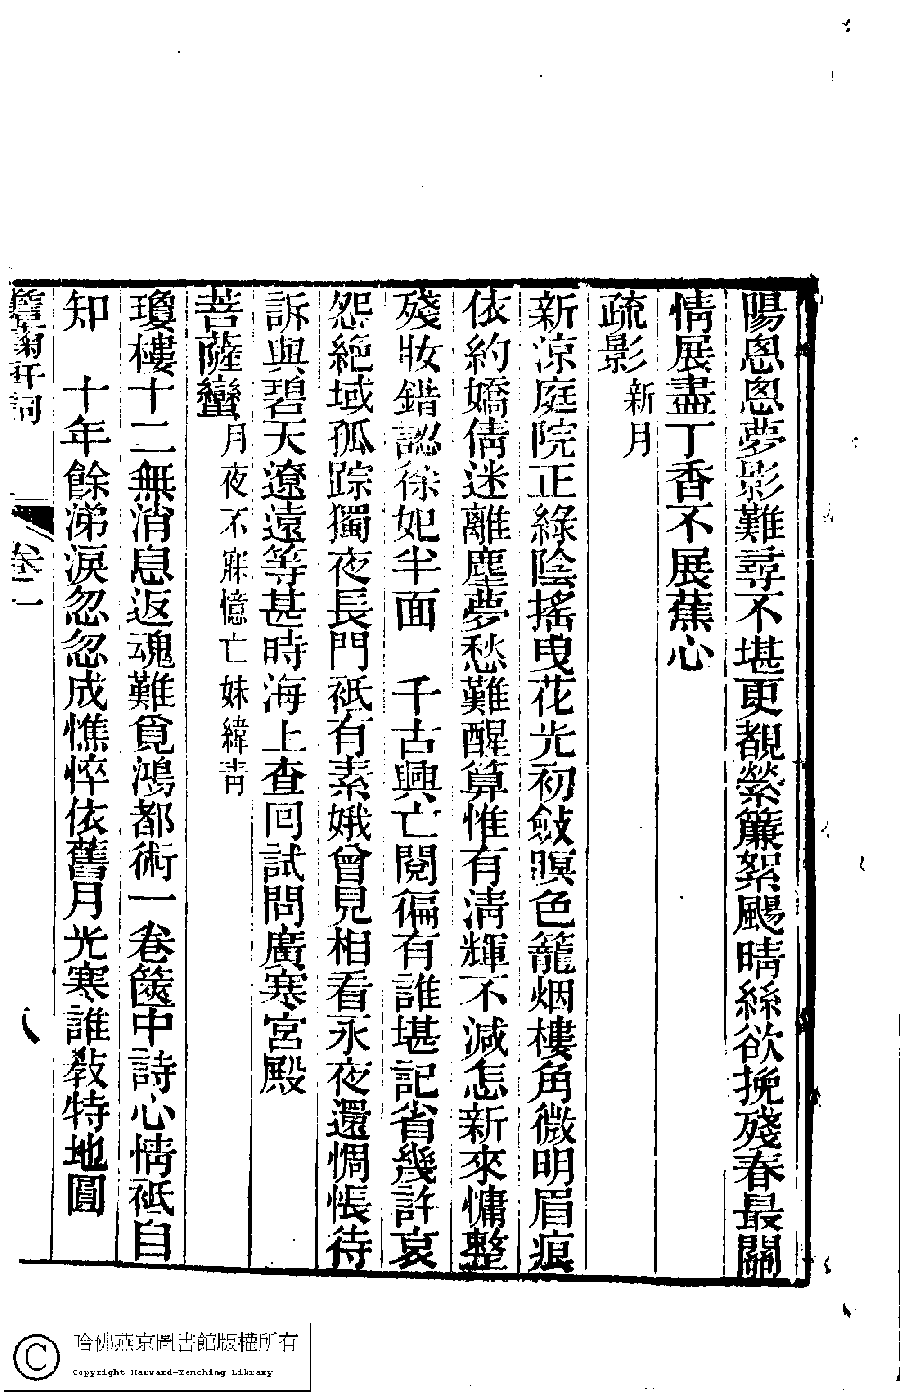 陽悤悤夢影難尋不堪更覩縈簾絮颺晴絲欲挽殘春最關
情展盡丁香不展蕉心
疏影 新月
新凉庭院正綠陰搖曳花光初斂暝色籠烟樓角微明眉痕
依約嬌倩迷離塵夢愁難醒算惟有清輝不減怎新來慵整
殘妝錯認徐妃半面 千古興亡閱徧有誰堪記省幾許哀
怨絶域孤踪獨夜長門祇有素娥曾見相看永夜還惆悵待
訴與碧天遼遠等甚時海上查回試問廣寒宮殿
菩薩蠻 月夜不寐憶亡妹緯青
瓊樓十二無消息返魂難覓鴻都術一卷篋中詩心情祇自
知 十年餘涕淚忽忽成憔悴依舊月光寒誰敎特地圓
菊軒詞 卷一 八
哈佛燕京圖書館版權所有
Copyright Harvard-Yenching Library